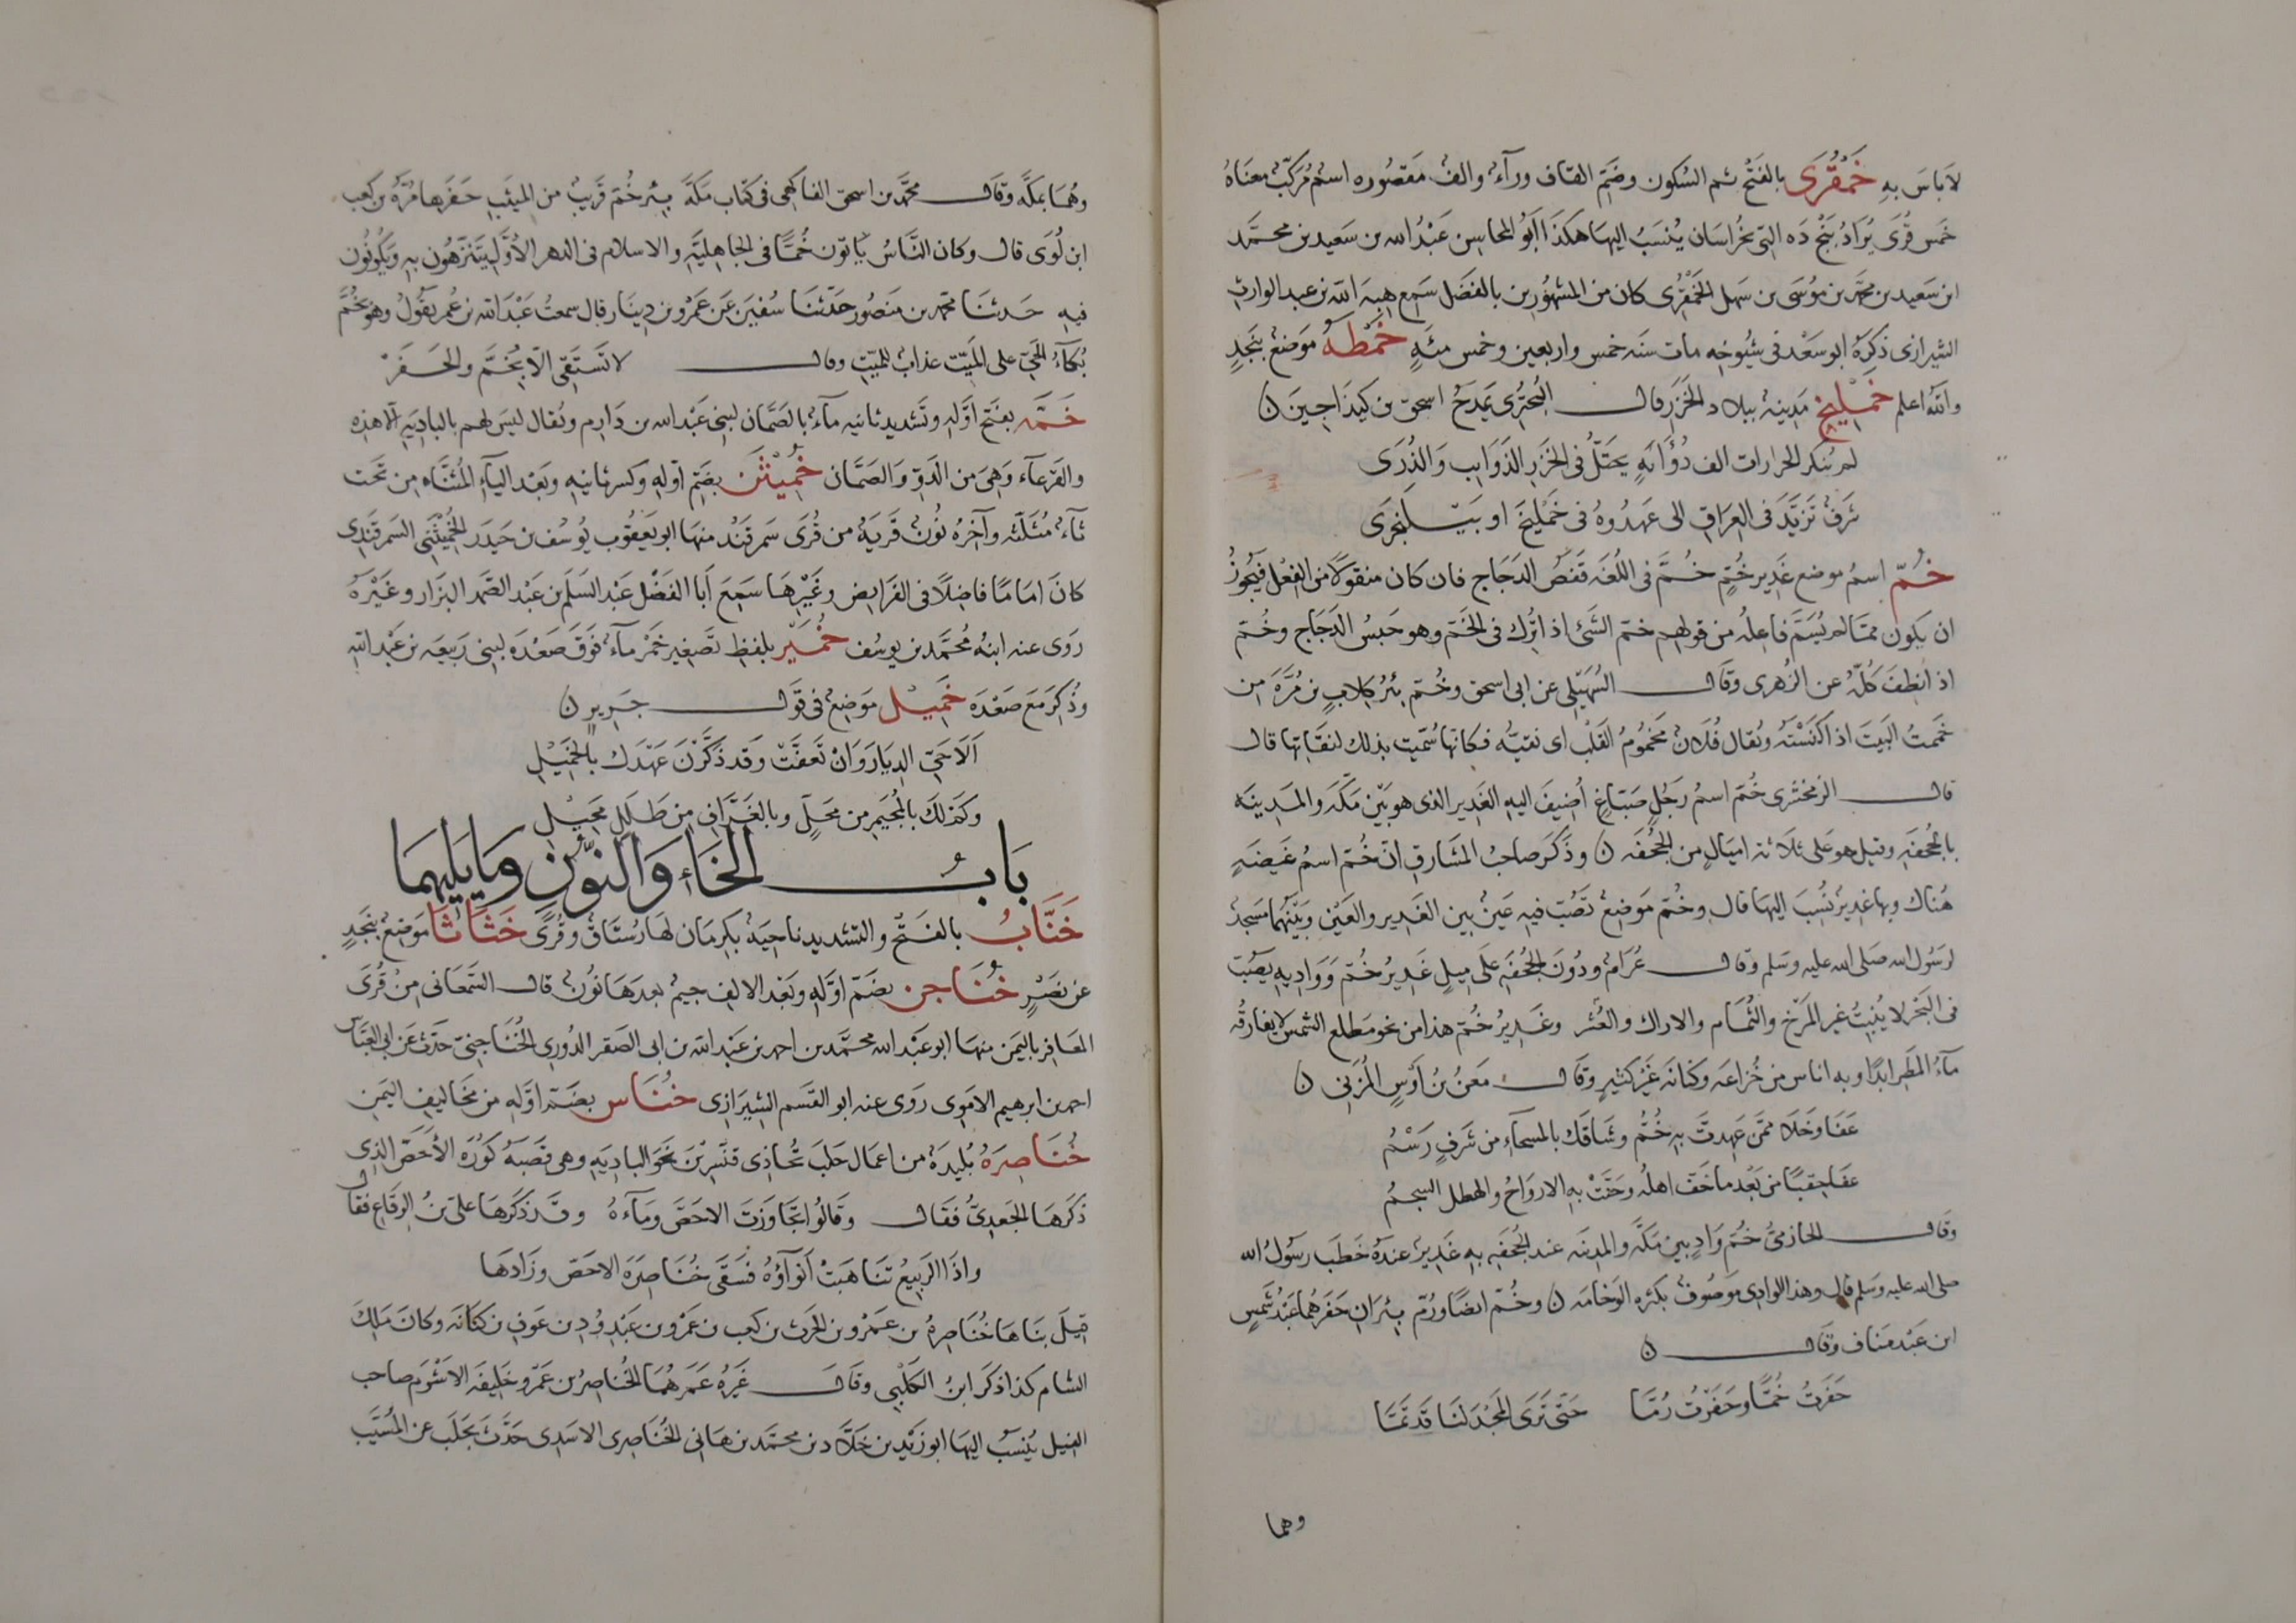 لاباس به خَمْقُرَى بالفتح ثم السكون وضم القاف ورآء والف مقصوره اسم مركّب معناه
خمس قرى يراد بنج ده التى بخراسان ينسب اليها هكذا ابو المحاسن عبد الله بن سعيد بن محمد
ابن سعيد بن محمد بن موسى بن سهل الخمقرى كان من المشهورين بالفضل سمع هبة الله بن عبد الوارث
الشيرازى ذكره ابو سعد فى شيوخه مات سنه خمس واربعين وخمس مئة خمطة موضع بنجد
والله اعلم خمليخ مدينة ببلاد الخزر قال البحترى يمدح اسحق بن كنداجين ن
لم تنكر الحرارات الف ذؤابة يحتل فى الخزر الذوايب والذرى
شرف تزيد فى العراق الى عهدوه فى خمليخ او ببلنجرى
خُمّ اسم موضع غدير خم خُمّ فى اللغه قفص الدجاج فان كان منقولا من الفعل فيجوز
ان يكون مما لم يسم فاعله من قولهم خم الشئ اذ اترك فى الخم وهو حبس الدجاج وخم
اذ انطف كلّه عن الزهرى وقال السهيلى عن ابى اسحق وخم بئر كلاب بن مرّة من
خممت البيت اذ اكنسته ويقال فلان مخموم القلب اى نقيّه فكانها سميت بذلك لنقائها قال
قال الزمخشرى خم اسم رجل صباغ أضيف اليه الغدير الذى هو بين مكة والمدينه
بالجحفه وقيل هو على ثلاثة اميال من الجحفه ن وذكر صاحب المشارق ان خم اسم غيضة
هناك وبها غدير نسب اليها قال وخم موضع تصب فيه عين بين الغدير والعين وبينهما مسجد
لرسول الله صلى الله عليه وسلم وقال عرام ودون الجحفه على ميل غدير خم وواديه يصب
فى البحر لا ينبت غير المرخ والثمام والاراك والعشر وغدير خم هذا من نحو مطلع الشمس لا يفارقه
مآء المطر ابدا وبه اناس من خزاعه وكنانه غير كثير وقال معن بن اوس المزنى ن
عفا وخلا ممن عهدت به خم وشاقك بالمسحاء من شرف رسم
عفا حقبا من بعد ما خف اهله وحنت به الارواح والهطل السجم
وقال الحازمى خم واد بين مكة والمدينه عند الجحفه به غدير عنده خطب رسول الله
صلى الله عليه وسلم قال وهذا الوادى موصوف بكثرة الوخامه ن وخم ايضا ورم بئران حفرهما عبد شمس
ابن عبد مناف وقال ن
حفرت خما وحفرت رما حتى ترى المجد لنا قد تما
وهما
وهما بمكة وقال محمد بن اسحق الفاكهى فى كتاب مكة بئر خم قريب من الميثب حفرها مرّة بن كعب
ابن لوى قال وكان الناس ياتون خمّا فى الجاهلية والاسلام فى الدهر الاول يتنزهون به ويكونون
فيه حدثنا محمد بن منصور حدثنا سفين عن عمرو بن دينار قال سمعت عبد الله بن عمر يقول وهو بخم
بكآء الحى على الميت عذاب للميت وقال لا تستقى الا بخم والحفر
خمّه بفتح اوله وتشديد ثانيه مآء بالصمان لبنى عبد الله بن دارم ويقال ليس لهم بالبادية الا هذه
والقرعآء وهى من الدو والصمان خُمِيثَن بضم اوله وكسر ثانيه وبعد اليآء المثناه من تحت
ثآء مثلثه وآخره نون قرية من قرى سمرقند منها ابو يعقوب يوسف بن حيدر الخميثنى السمرقندى
كان اماما فاضلا فى الفرايض وغيرها سمع أبا الفضل عبد السلم بن عبد الصمد البزار وغيره
روى عنه ابنه محمد بن يوسف خُمَير بلفظ تصغير خمر مآء فوق صعده لبنى ربيعه بن عبد الله
وذكر مع صعده خَمِيل موضع فى قول جرير ن
ألا حى الديار وان تعفت وقد ذكرن عهدك بالخميل
وكم لك بالمجيمر من محل وبالغراف من طلل محيل
باب الخاء والنون وما يليهما
خَنَّاب بالفتح والتشديد ناحية بكرمان لها رستاق وقرى خَثَاثا موضع بنجد
عن نصر خُنَاجن بضم اوله وبعد الالف جيم بعدها نون قال السمعانى من قرى
المعافر باليمن منها ابو عبد الله محمد بن احمد بن عبد الله بن ابى الصقر الدورى الخناجنى حدث عن ابى العباس
احمد بن ابرهيم الاموى روى عنه ابو القسم الشيرازى خُنَاس بضم اوله من مخاليف اليمن
خُنَاصِرَة بليدة من اعمال حلب تحاذى قنسرين نحو البادية وهى قصبة كورة الأحص الذى
ذكرها الجعدىّ فقال وقالوا تجاوزت الاحص ومآءه وقد ذكرها على بن الرقاع فقال
واذا الربيع تتاهبت أنوآؤه فسقى خناصرة الاحص وزادها
قيل بناها خناصرة بن عمرو بن الحرث بن كعب بن عمرو بن عبد ود بن عوف بن كنانه وكان ملك
الشام كذا ذكر ابن الكلبى وقال غيره عمرهما الخناصر بن عمرو خليفه الاشرم صاحب
الفيل ينسب اليها ابو زيد بن خلاد بن محمد بن هانى الخناصرى الاسدى حدث بحلب عن المسيّب